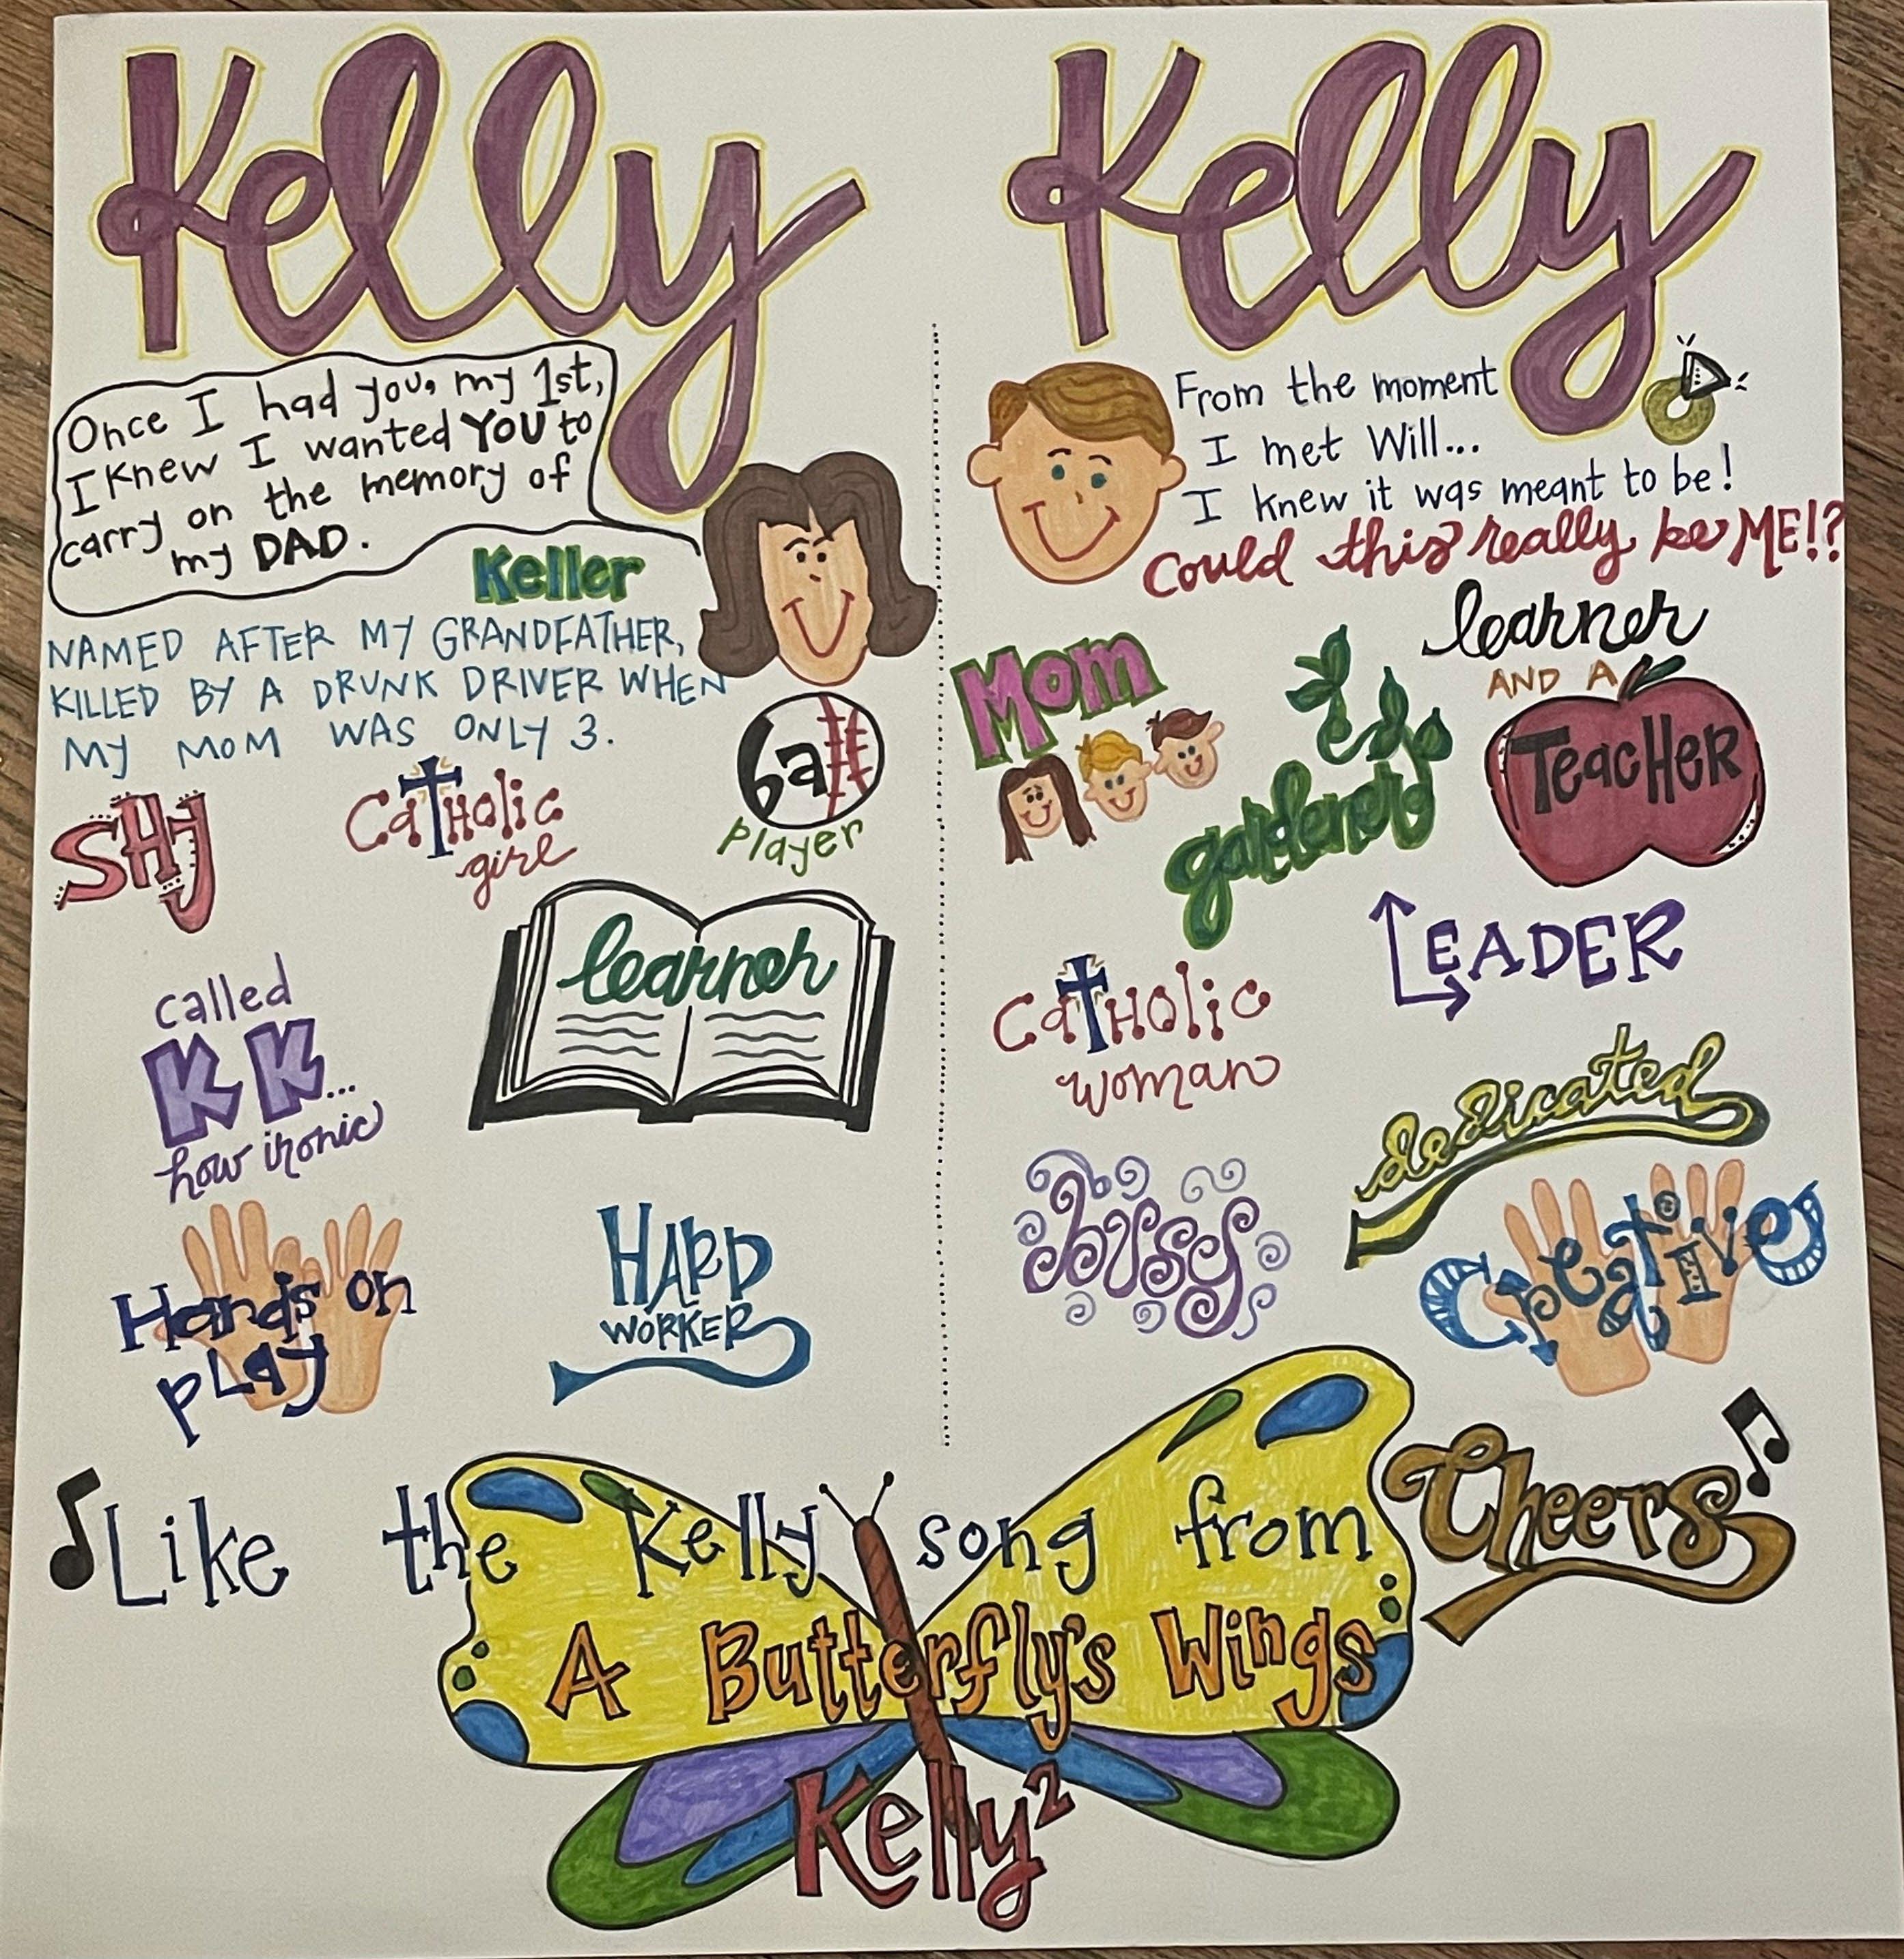 Kelly
Once I had you, my 1st,
I knew I wanted YOU to
carry on the memory of
my DAD.
Keller
NAMED AFTER MY GRANDFATHER,
KILLED BY A DRUNK DRIVER WHEN
MY MOM WAS ONLY 3.
SHY
Catholic
girl
ball
player
called
KK...
how ironic
learner
Hands on
play
HARD
WORKER
Kelly
From the moment
I met Will...
I knew it was meant to be!
Could this really be ME!?
Mom
gardener
learner
AND A
TeacHeR
LEADER
Catholic
woman
dedicated
busy
Creative
Like the Kelly song from Cheers
A Butterfly's Wings
Kelly²